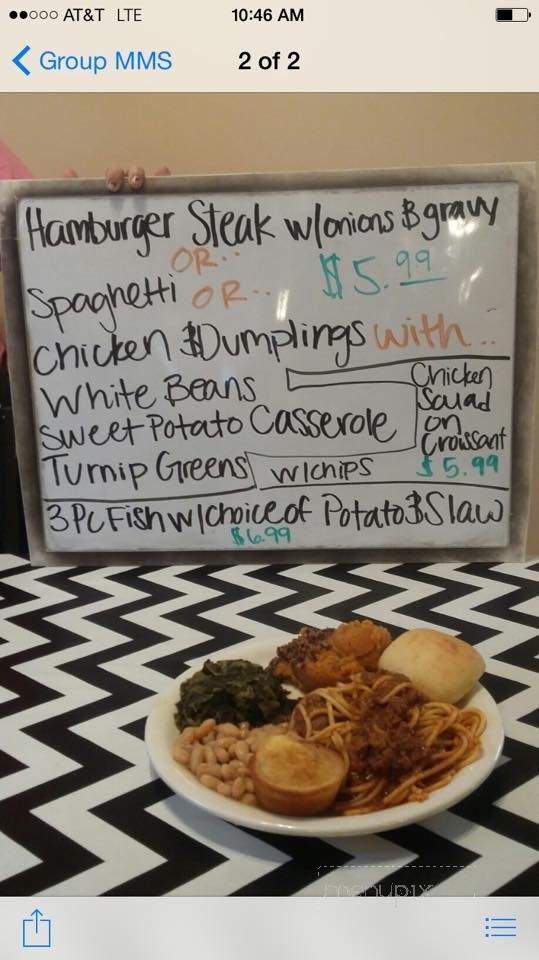 AT&T LTE 10:46 AM
Group MMS 2 of 2
Hamburger Steak w/onions & gravy
OR.. $5.99
Spaghetti OR..
Chicken & Dumplings with..
White Beans
Sweet Potato Casserole
Turnip Greens
Chicken
Salad
on
Croissant
w/chips $5.99
3 Pc Fish w/choice of Potato & Slaw
$6.99
menupix